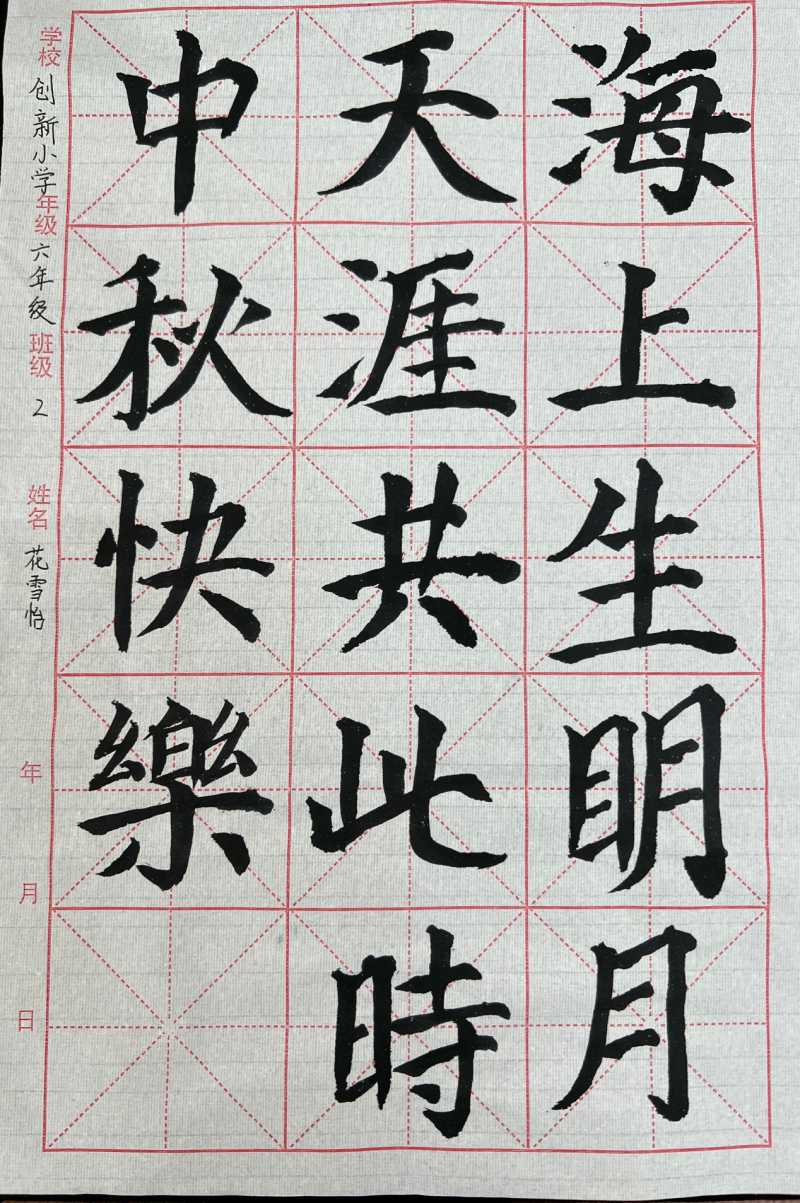 海上生明月
天涯共此時
中秋快樂
学校 创新小学
年级 六年级
班级 2
姓名 花雪怡
年 月 日